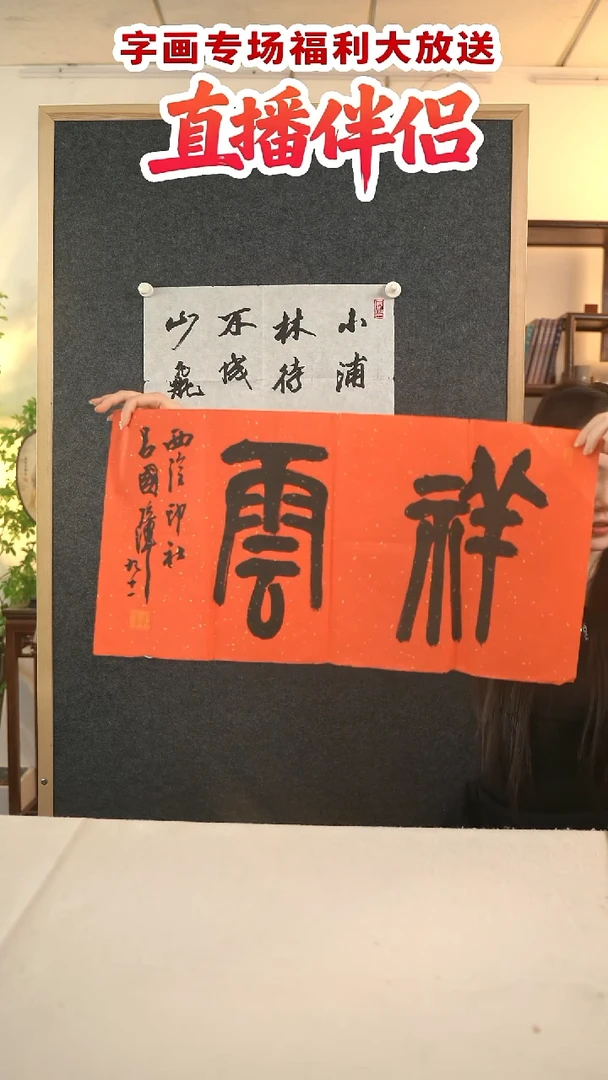 字画专场福利大放送
直播伴侣
小浦
林待
不成
山飛
祥雲
西泠印社
吕國璋九十二